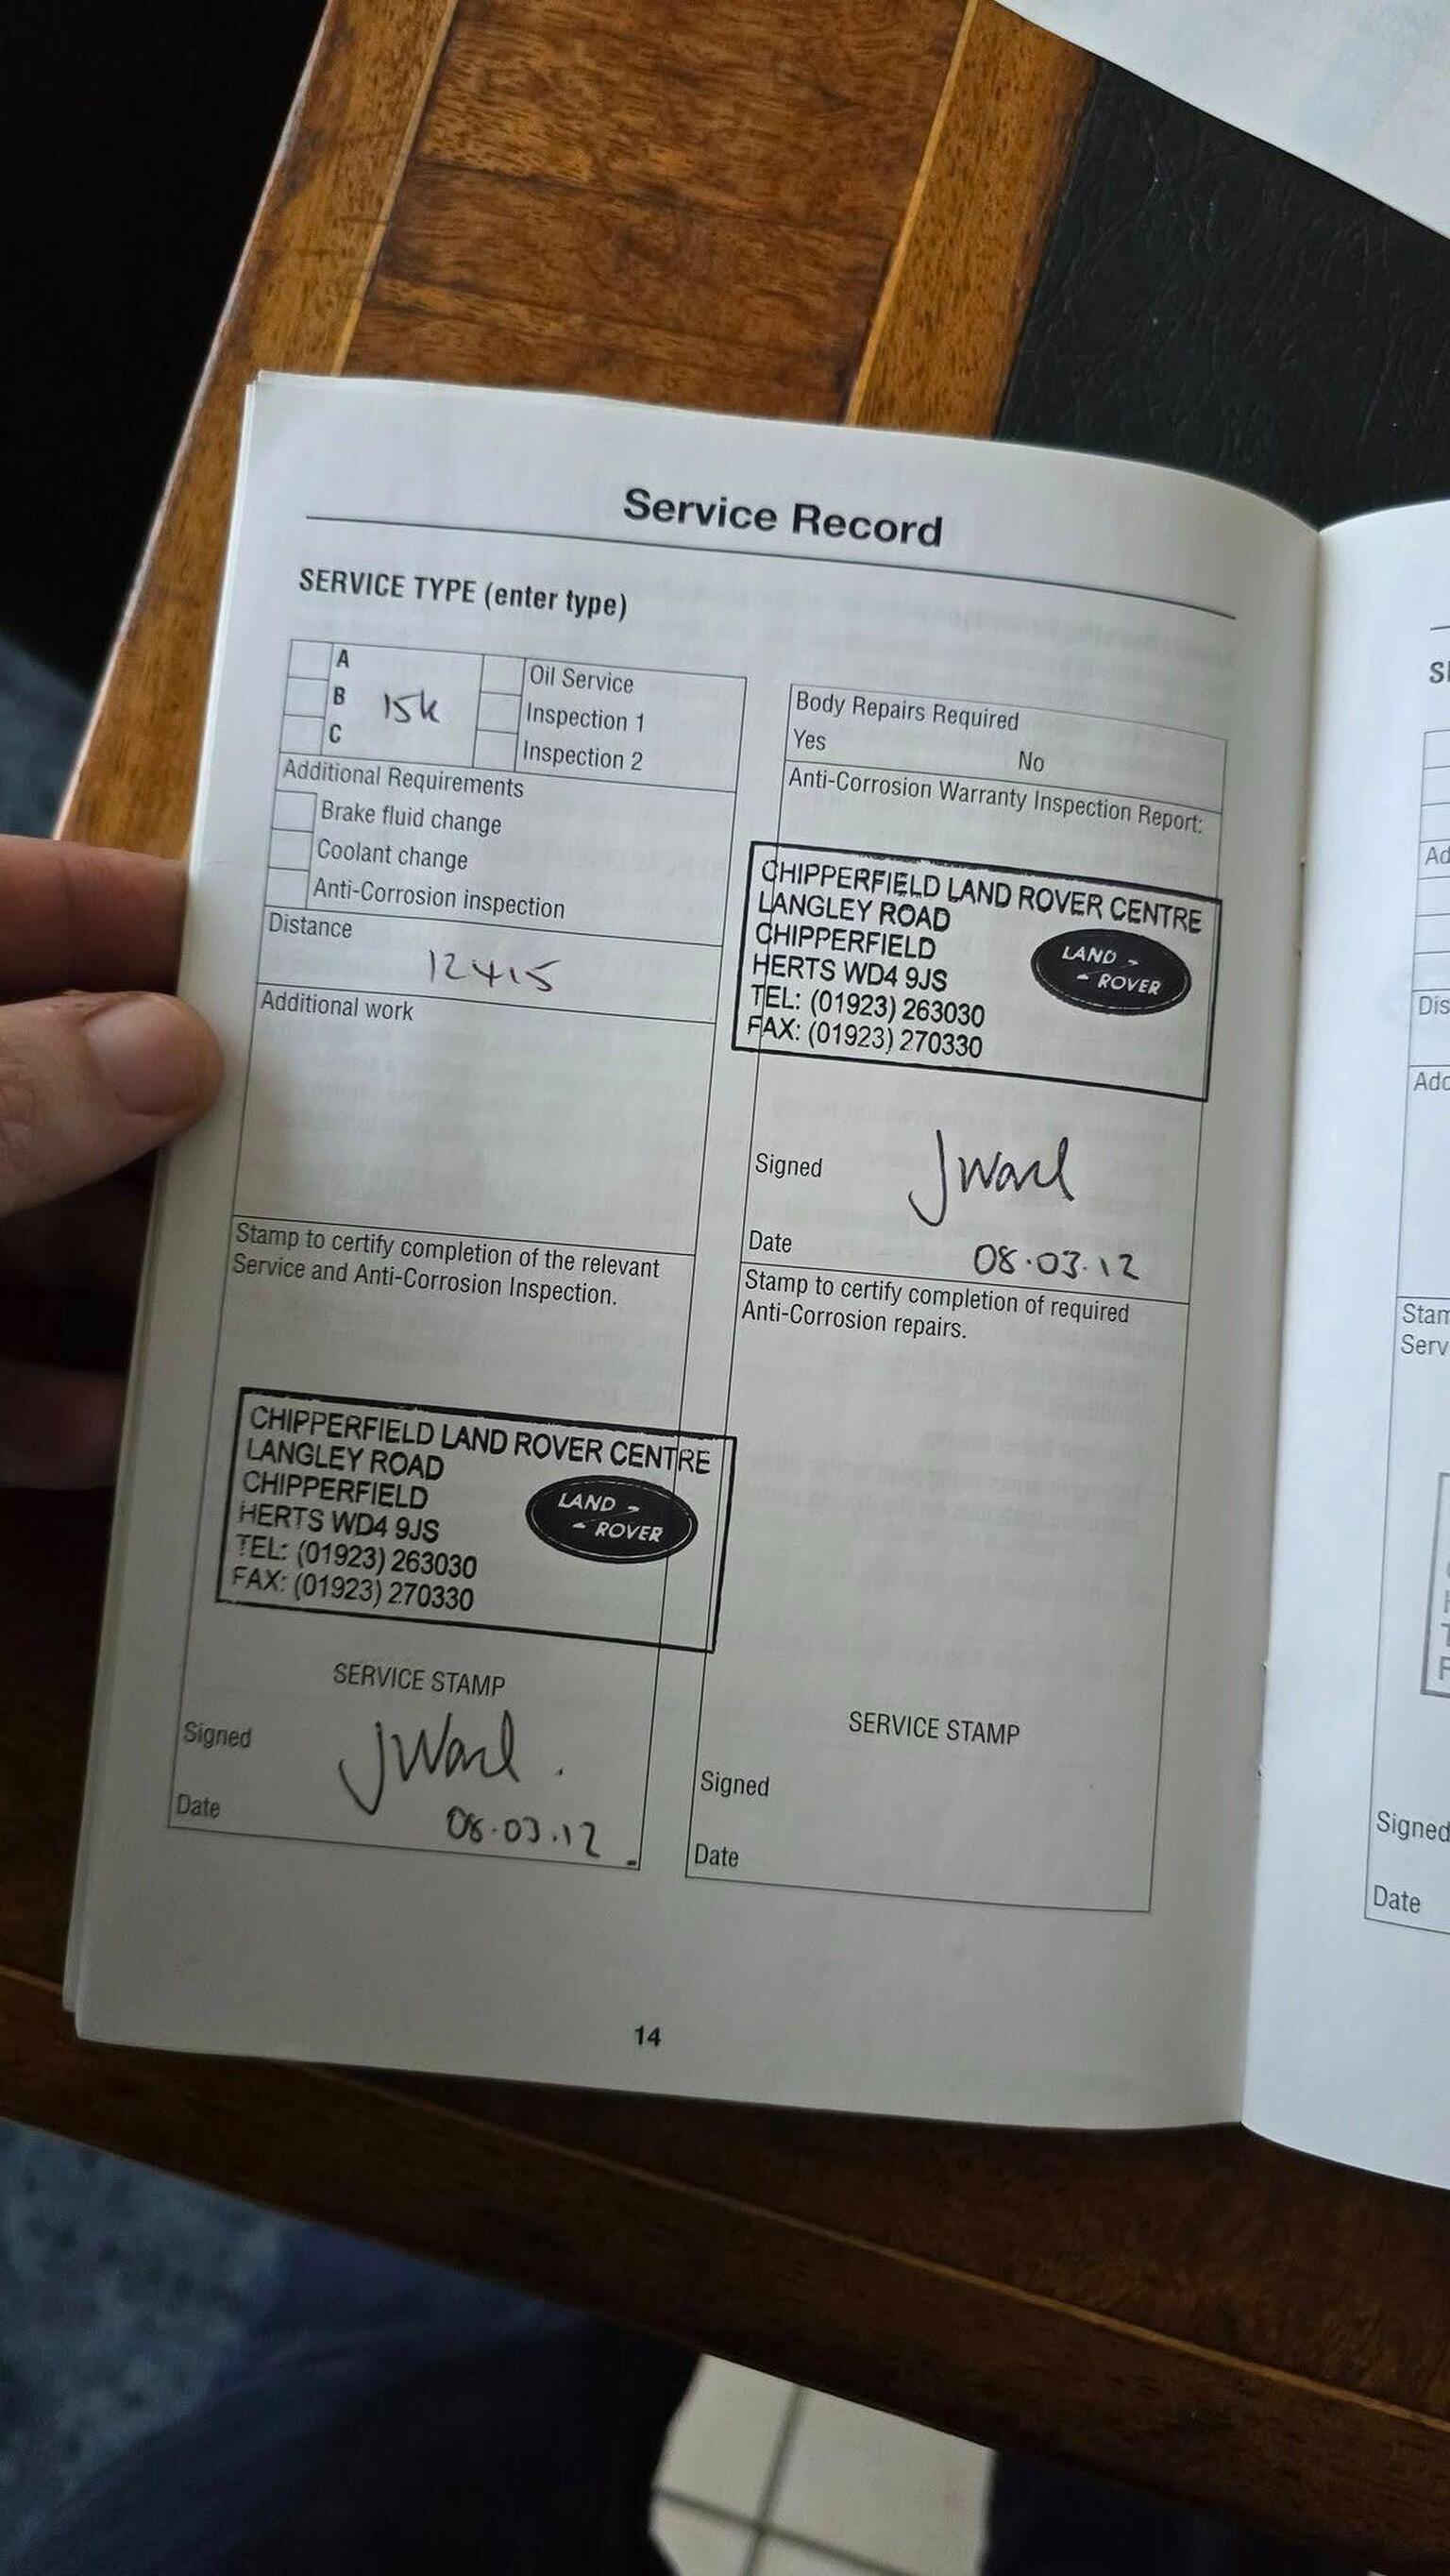 Service Record
SERVICE TYPE (enter type)
A
B
C
15k
Oil Service
Inspection 1
Inspection 2
Additional Requirements
Brake fluid change
Coolant change
Anti-Corrosion inspection
Distance
12415
Additional work
Stamp to certify completion of the relevant
Service and Anti-Corrosion Inspection.
CHIPPERFIELD LAND ROVER CENTRE
LANGLEY ROAD
CHIPPERFIELD
HERTS WD4 9JS
TEL: (01923) 263030
FAX: (01923) 270330
LAND
ROVER
SERVICE STAMP
Signed
JWard.
Date
08.03.12
Body Repairs Required
Yes No
Anti-Corrosion Warranty Inspection Report:
CHIPPERFIELD LAND ROVER CENTRE
LANGLEY ROAD
CHIPPERFIELD
HERTS WD4 9JS
TEL: (01923) 263030
FAX: (01923) 270330
LAND
ROVER
Signed JWard
Date 08.03.12
Stamp to certify completion of required
Anti-Corrosion repairs.
SERVICE STAMP
Signed
Date
14
Signed
Date